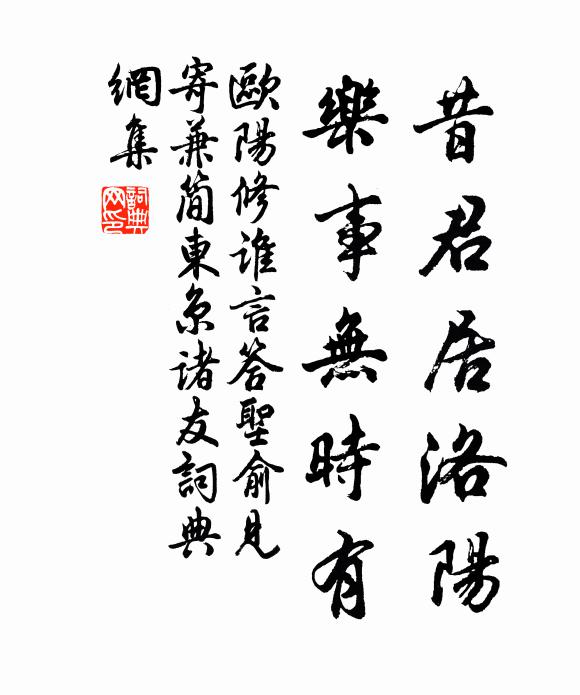 昔君居洛陽
樂事無時有
歐陽修誰言答聖俞見
寄兼簡東京諸友詞典
網集
詞典
网印